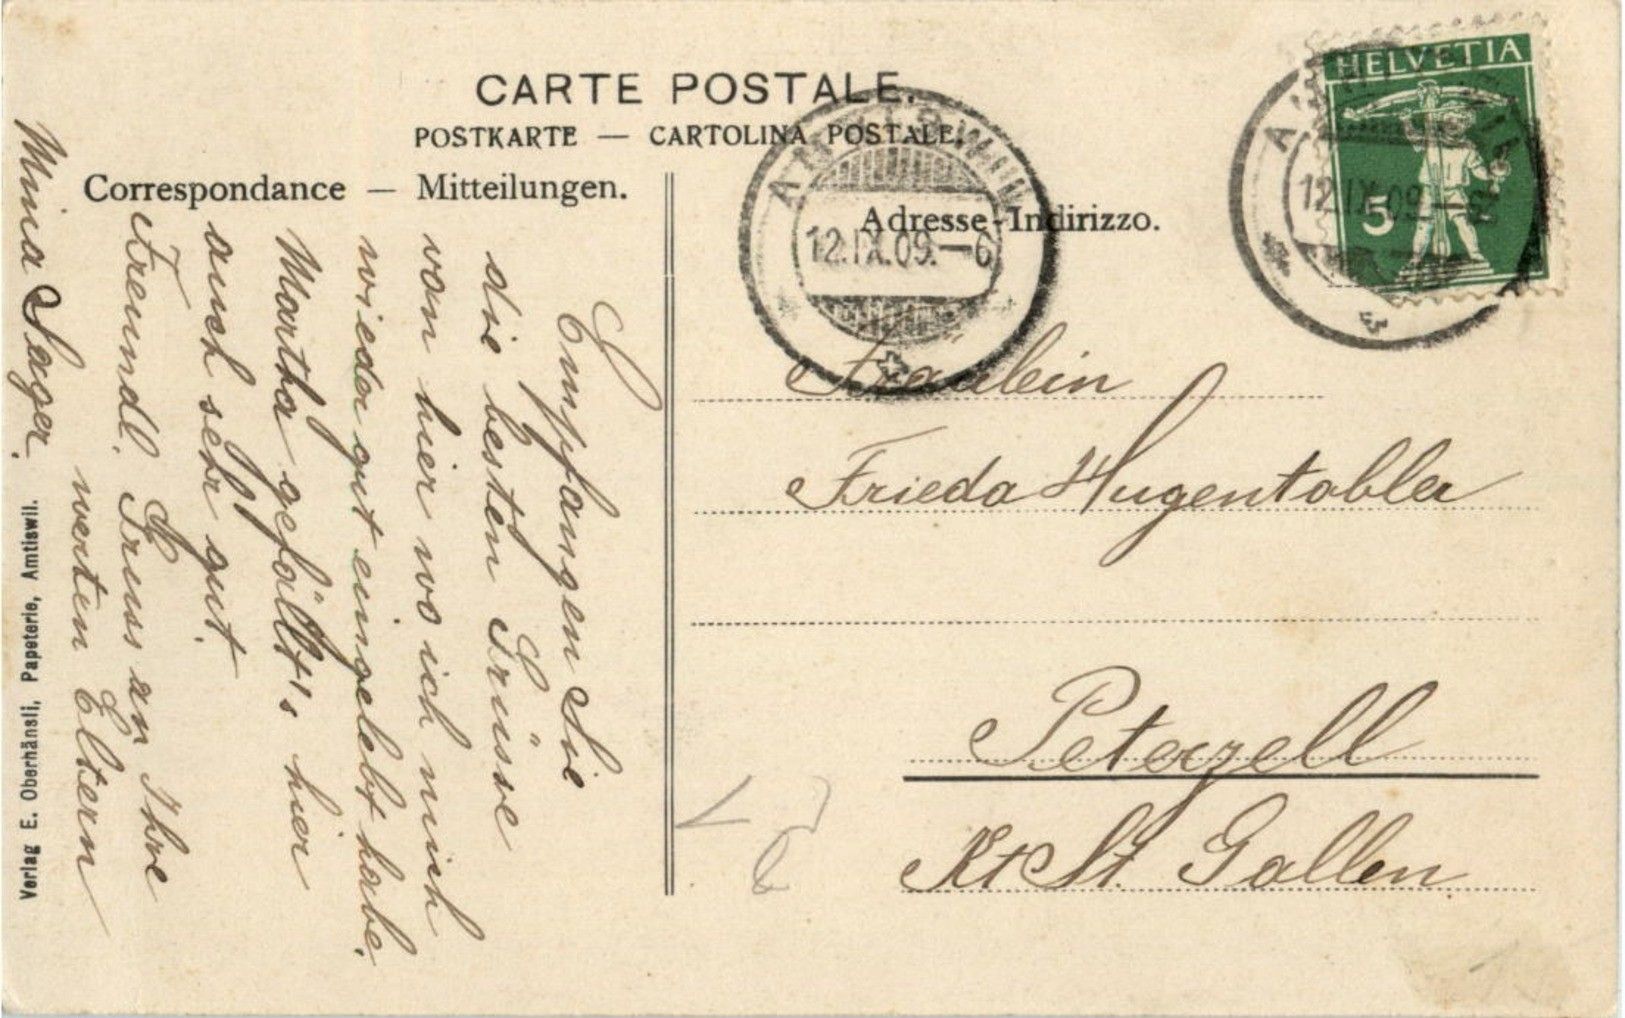 CARTE POSTALE.
POSTKARTE — CARTOLINA POSTALE.
Correspondance — Mitteilungen.
Adresse-Indirizzo.
HELVETIA
5
12.IX.09.–6
12.IX.09.–
Empfangen Sie
die besten Grüsse
von hier wo ich mich
wieder gut eingelebt habe.
Martha gefällt's hier
auch sehr gut.
Freundl. Gruss an Ihre
werten Eltern
Mina Sager.
Fräulein
Frieda Hugentobler
Peterzell
Kt St. Gallen
Verlag E. Oberhänsli, Papeterie, Amriswil.